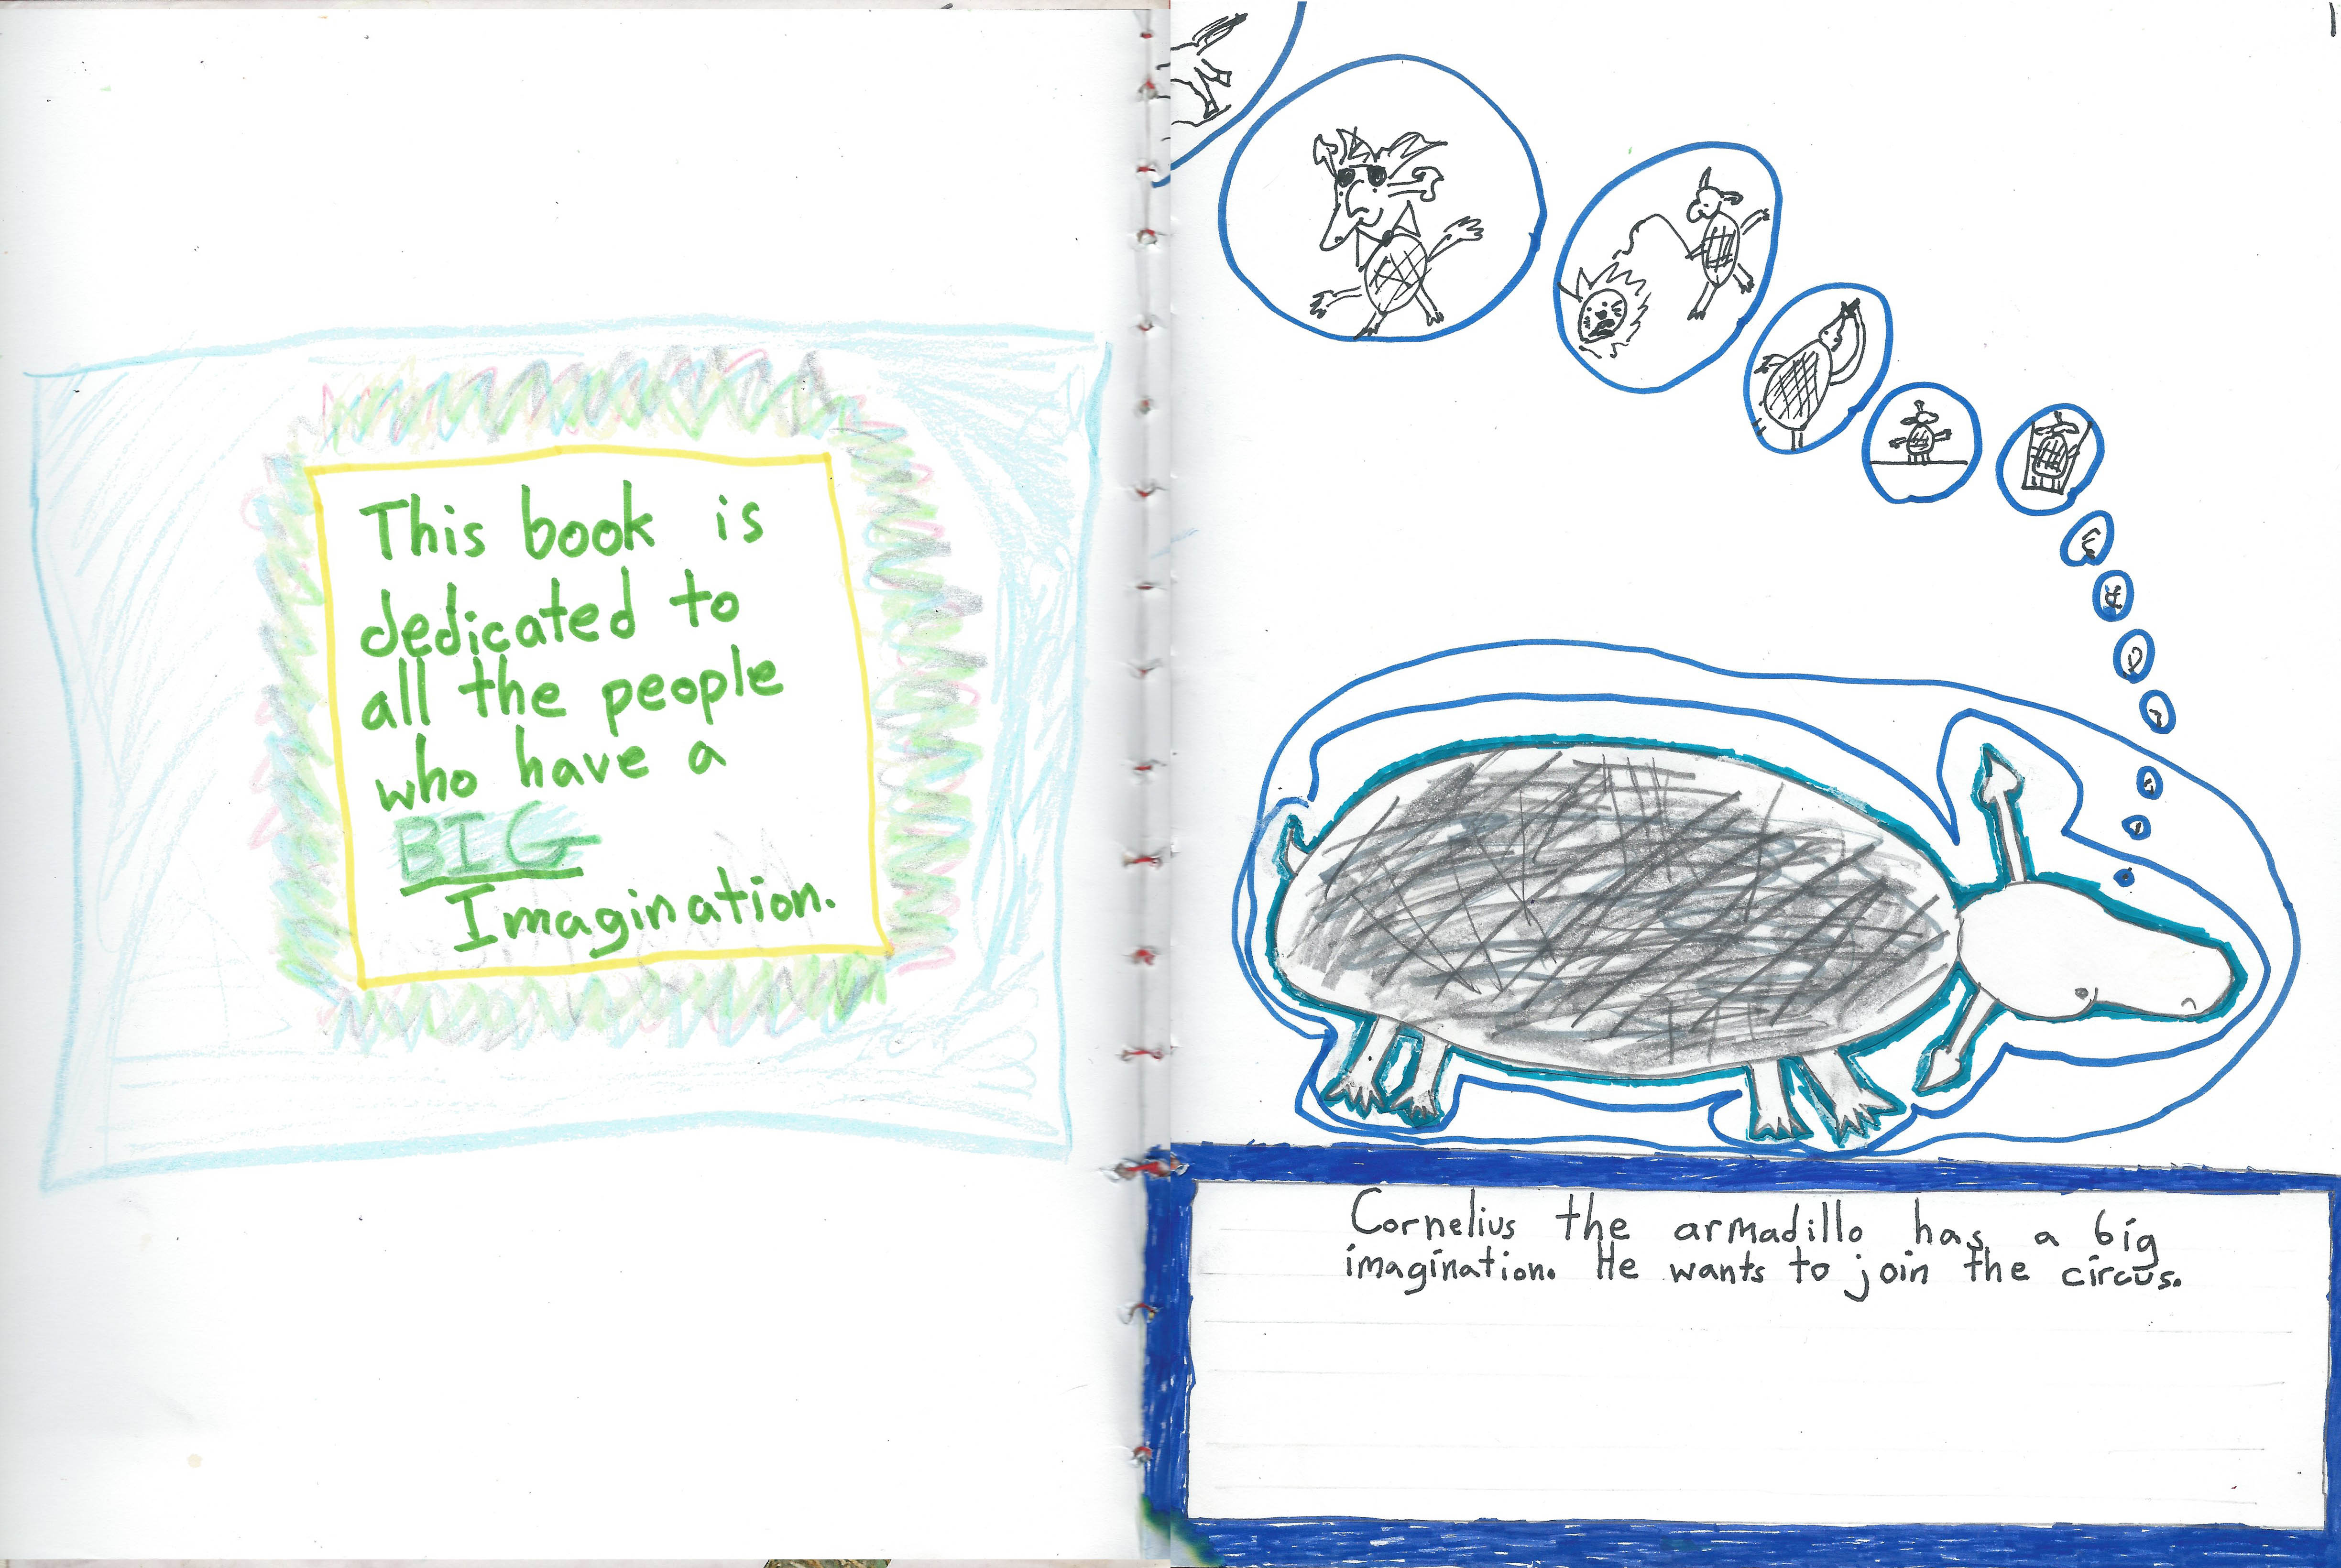 This book is
dedicated to
all the people
who have a
BIG
Imagination.
1
Cornelius the armadillo has a big
imagination. He wants to join the circus.